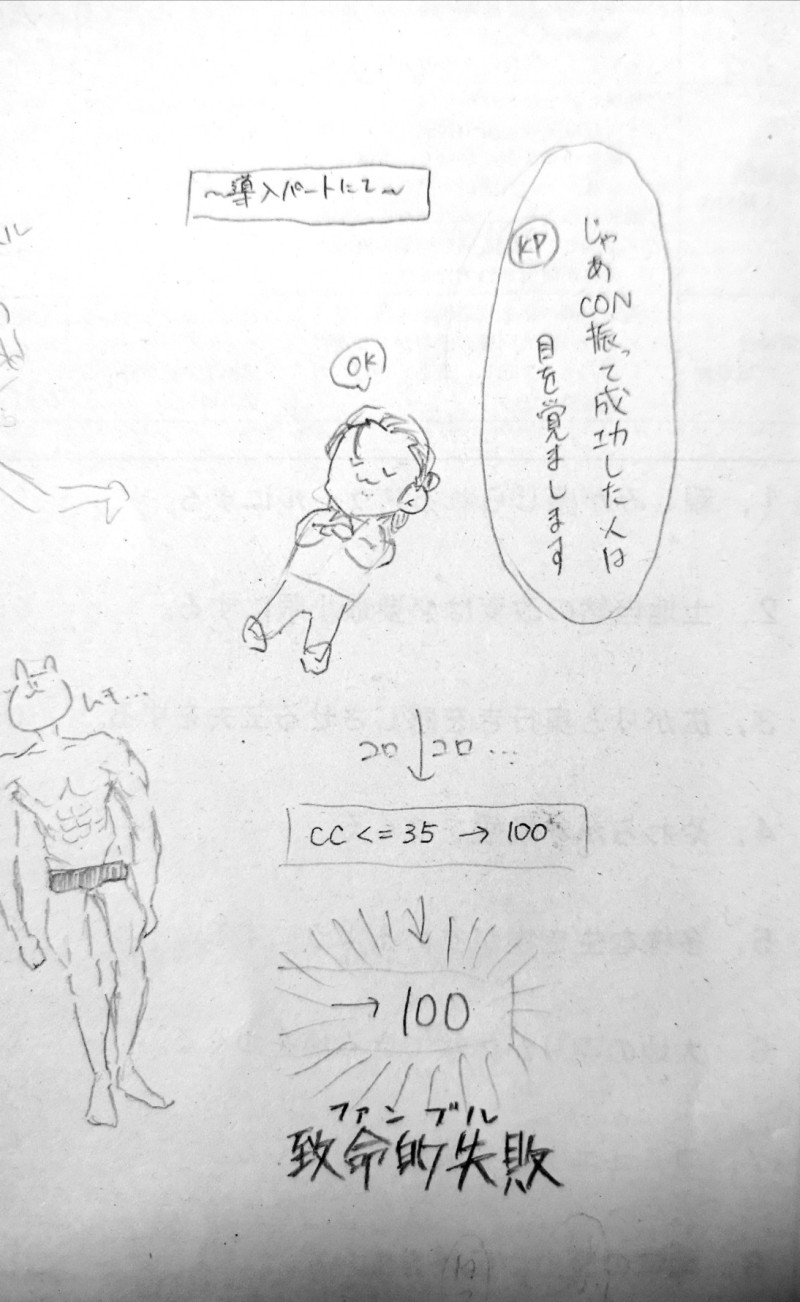 ～導入パートにて～
じゃあCON振って成功した人は
目を覚まします
KP
OK
ムキ…
コロ コロ…
CC<=35 → 100
→ 100
ファンブル
致命的失敗